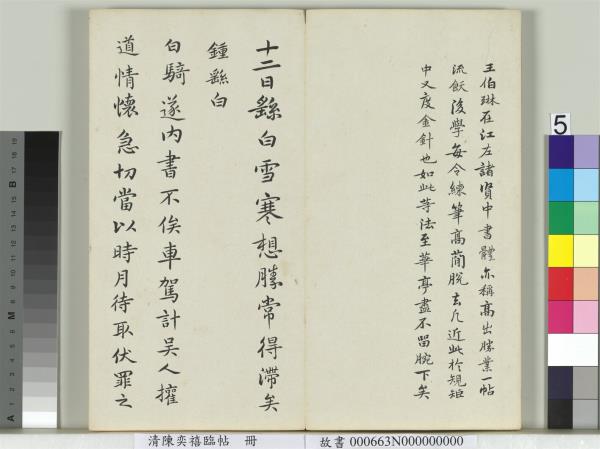 王伯琳在江左諸賢中書體亦稱高出勝業一帖
流飫後學每令練筆高簡脫去凡近此於規矩
中又度金針也如此等法至華亭盡不留腕下矣
十二日繇白雪寒想勝常得滯矣
鍾繇白
白騎遂內書不俟車駕計吳人權
道情懷急切當以時月待取伏罪之
5
清陳奕禧臨帖 冊
故書 000663N000000000